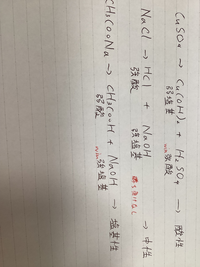 CuSO₄ → Cu(OH)₂ + H₂SO₄ → 酸性
弱塩基 強酸
NaCl → HCl + NaOH → 中性
強酸 強塩基
CH₃COONa → CH₃COOH + NaOH → 塩基性
弱酸 強塩基